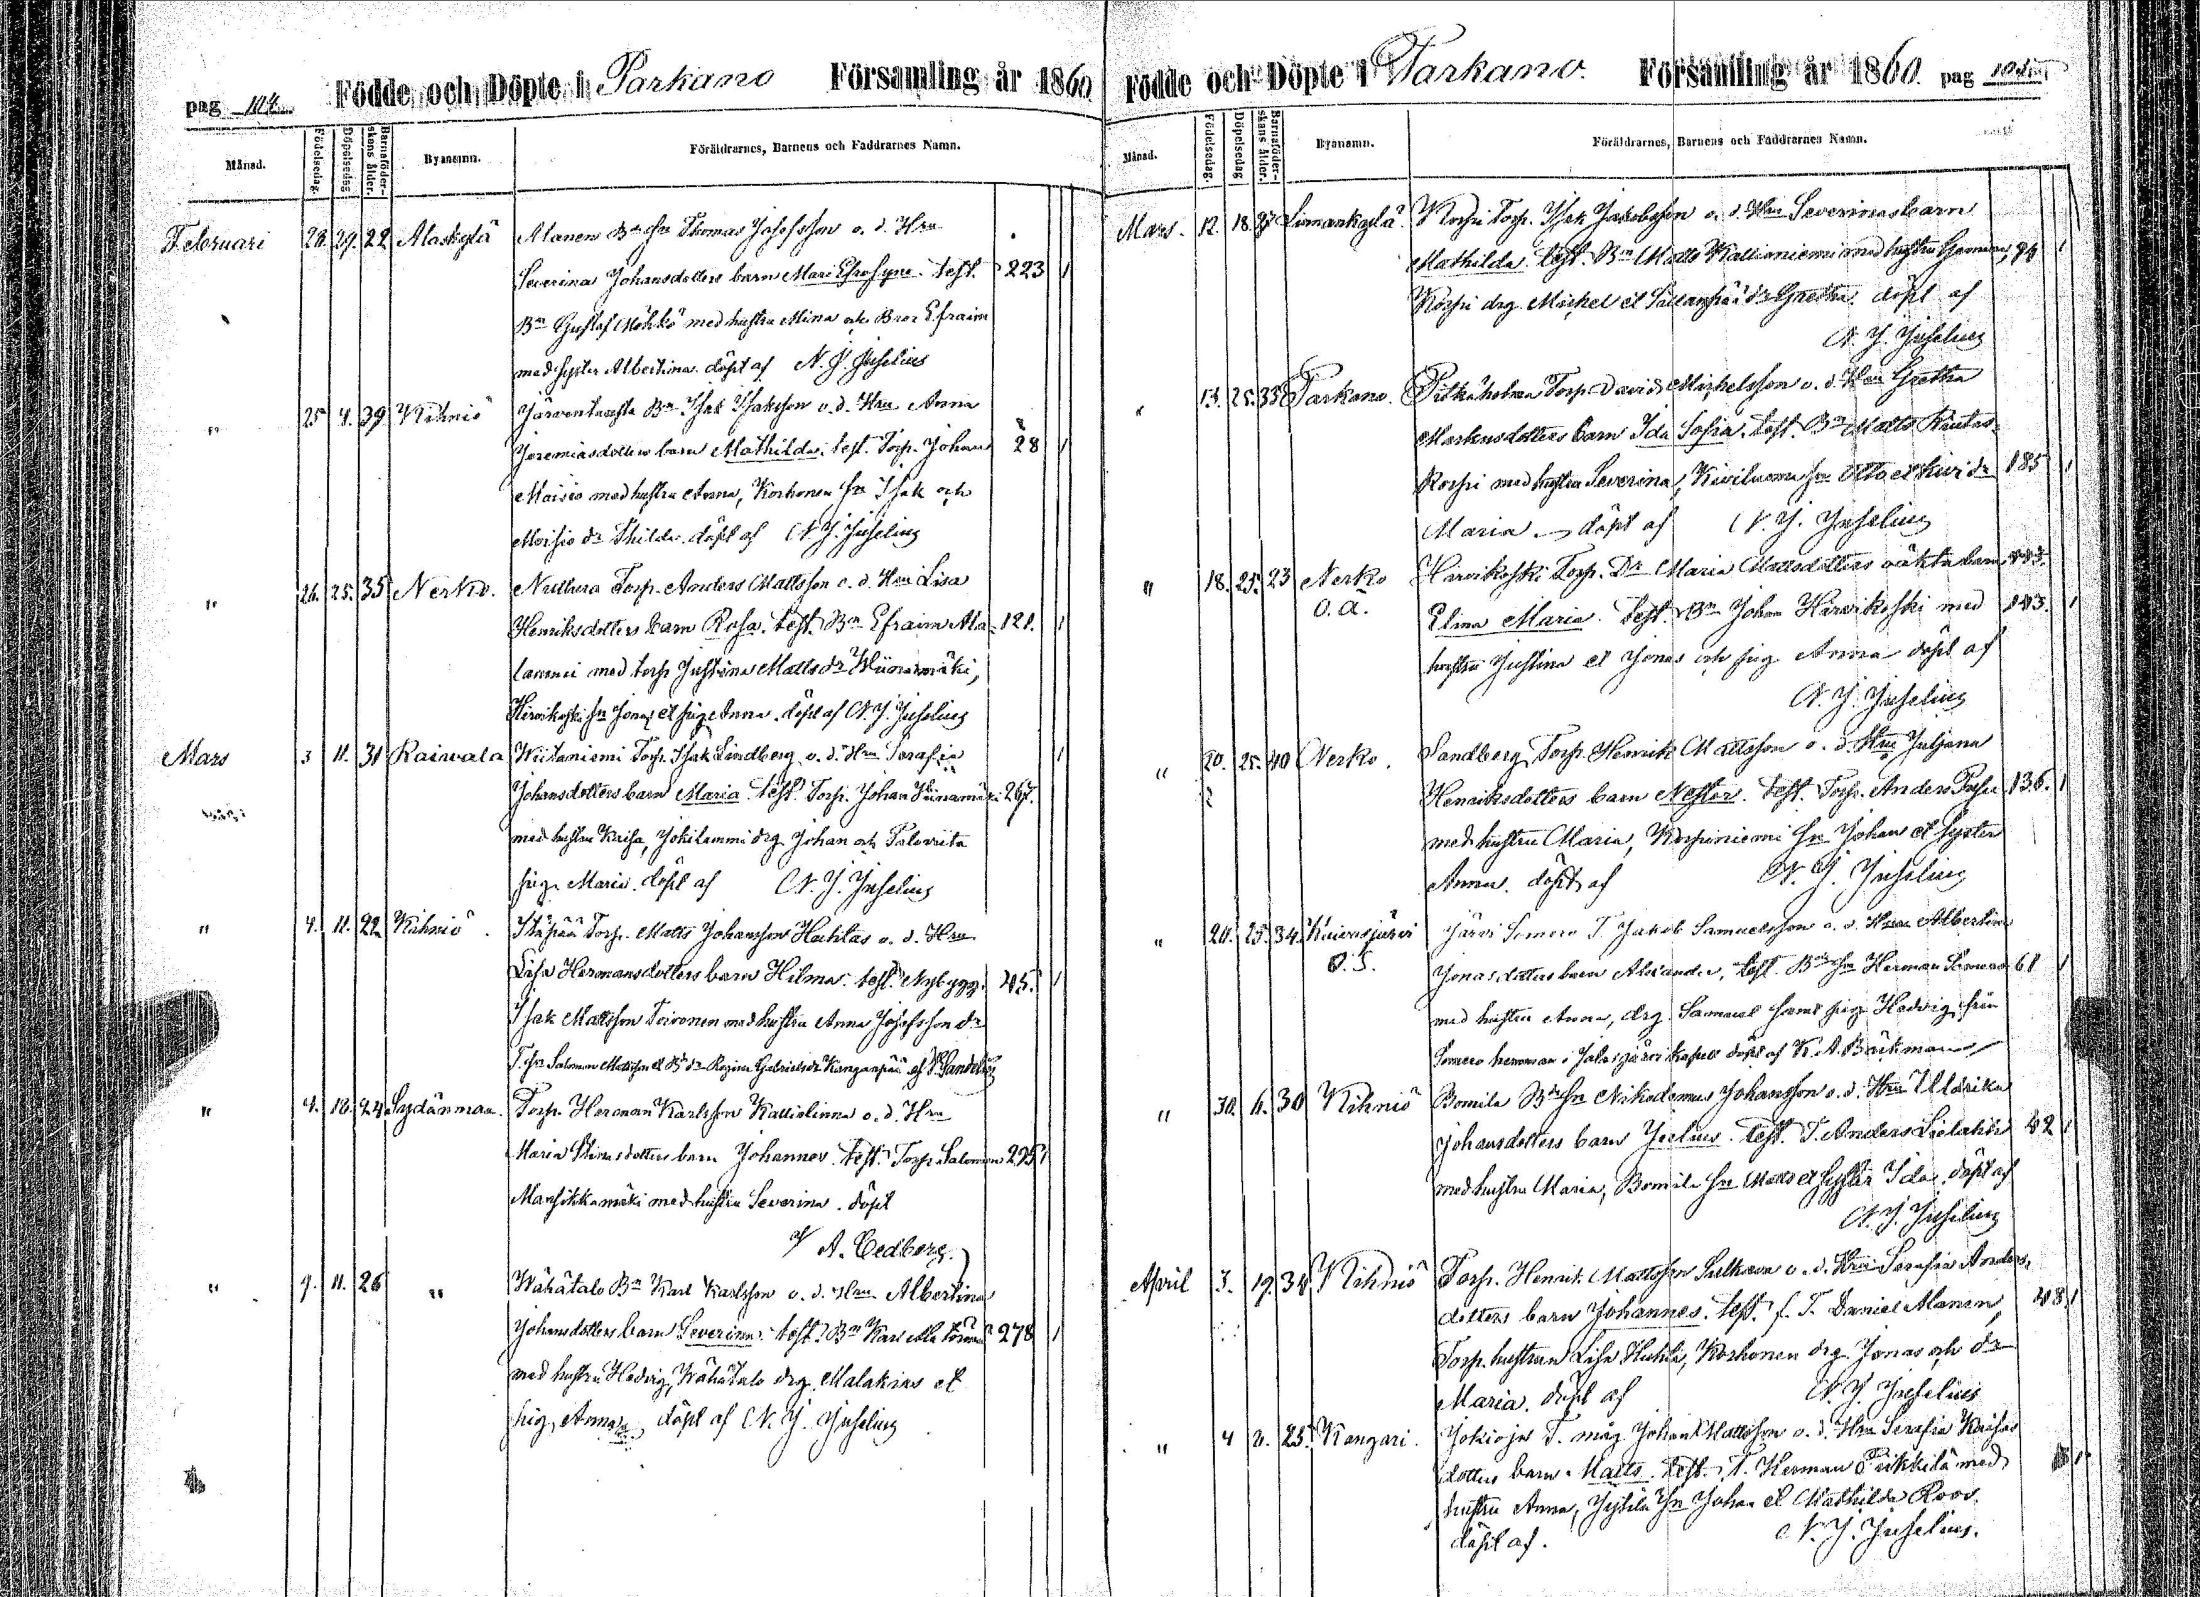 pag 104. Födde och Döpte i Parkano Församling år 1860
Månad. Födelsedag. Döpelsedag Barnaföderskans ålder. Bynamn. Föräldrarnes, Barnens och Faddrarnes Namn.
Februari 28. 29. 22 Alaskylä Alanen Bn Sn Thomas Josefsson o. d. Hru
Severina Johansdotters barn Mari Efrosyne. test. 223 1
Bn Gustaf Möhkö med hustru Mina och Bror Efraim
med syster Albertina. döpt af N. J. Juselius
" 25 4. 39 Kihniö Järventausta Bn Isak Isaksson o. d. Hru Anna
Jeremiasdotters barn Mathilda. test. Torp. Johan 28 1
Moisio med hustru Anna, Korhonen Sn Isak och
Moisio dr Thilda. döpt af N. J. Juselius
" 26. 25. 35 Nerko. Torp. Anders Mattsson o. d. Hru Lisa
Henriksdotters barn Rosa. test. Bn Efraim Ala- 121. 1
lammi med torp Justina Mattsdr Wiinamäki,
Hirvikoski Sn Jonas et pige Anna. döpt af N. J. Juselius
Mars 3 11. 31 Raiwala Wiitaniemi Torp. Isak Lindberg o. d. Hru Serafia 1
Johansdotters barn Maria. test. Torp. Johan Wiinamäki 267.
med hustru Kaisa, Jokilammi drg Johan och
pige Maria. döpt af N. J. Juselius
" 4. 11. 22 Kihniö. Torp. Matts Johansson o. d. Hru
Lisa Hermansdotters barn Hilma. test. Nybygg. 45. 1
Isak Mattsson Toivonen med hustru Anna Josefsson dr
T. Sn Salomon Mattsson et Bn dr Regina Gabrielsdr Kanganpää af
" 4. 18. 24 Sydänmaa. Torp. Herman Karlsson Kalliolinna o. d. Hru
Maria dotters barn Johannes. test. Torp. Salomon 295 1
Mansikkamäki med hustru Severina. döpt
A. Cedberg.
" 9. 11. 26 " Wähätalo Bn Karl Karlsson o. d. Hru Albertina
Johansdotters barn Severina. test. Bn Karl 278 1
med hustru Hedvig, Wähätalo drg. Malakias et
pig. Anna. döpt af N. J. Juselius
Födde och Döpte i Parkano. Församling år 1860. pag 105
Månad. Födelsedag. Döpelsedag Barnaföderskans ålder. Bynamn. Föräldrarnes, Barnens och Faddrarnes Namn.
Mars. 12. 18. 27 Linnankylä. Korpi Torp. Isak Jakobsson o. d. Hru Severinas barn
Mathilda. test. Bn Matts Kallioniemi med hustru 1
Korpi drg. Michel et dr Gretha. döpt af
N. J. Juselius
" 13. 25. 35 Parkano. Torp. David Michelsson o. d. Hru Gretha
Markusdotters barn Ida Sofia. test. Bn Matts
Korpi med hustru Severina, Kiviluoma Sn Otto et dr 185 1
Maria. döpt af N. J. Juselius
" 18. 25. 23 Nerko Hirvikoski Torp. Dr Maria Mattsdotters oäkta barn
o. ä. Elina Maria. test. Bn Johan Hirvikoski med 143. 1
hustru Justina et Jonas och pig. Anna döpt af
N. J. Juselius
" 20. 25. 40 Nerko. Sandberg Torp. Henrik Mattsson o. d. Hru Juljana
Henriksdotters barn Nestor. test. Torp. Anders 136. 1
med hustru Maria, Korpiniemi Sn Johan et syster
Anna. döpt af N. J. Juselius
" 20. 25. 34. Järvi Somero T. Jakob Samuelsson o. d. Hru Albertina
Jonasdotters barn Alexander, test. Bn Sn Herman Somero 61 1
med hustru Anna, drg. Samuel samt pige Hedvig från
Somero hemman i Jalasjärvi döpt af K. A. Bäckman
" 30. 6. 30 Kihniö Bomila Bn Sn Nikodemus Johansson o. d. Hru Ulldrika
Johansdotters barn Joelius. test. T. Anders 42 1
med hustru Maria, Bomila Sn Matts et syster Ida. döpt af
N. J. Juselius
April 3. 19. 34 Kihniö Torp. Henrik Mattsson o. d. Hru Serafia Anders-
dotters barn Johannes. test. f. T. Daniel Alanen, 48. 1
Torp. hustrun Lisa Huhta, Korhonen drg. Jonas och dr
Maria. döpt af N. J. Juselius
" 4 8. 25. Kangari. Jokioja T. måg Johan Mattsson o. d. Hru Serafia
dotters barn Matts. test. T. Herman med
hustru Anna, Sn Johan et Mathilda Roos.
döpt af. N. J. Juselius.